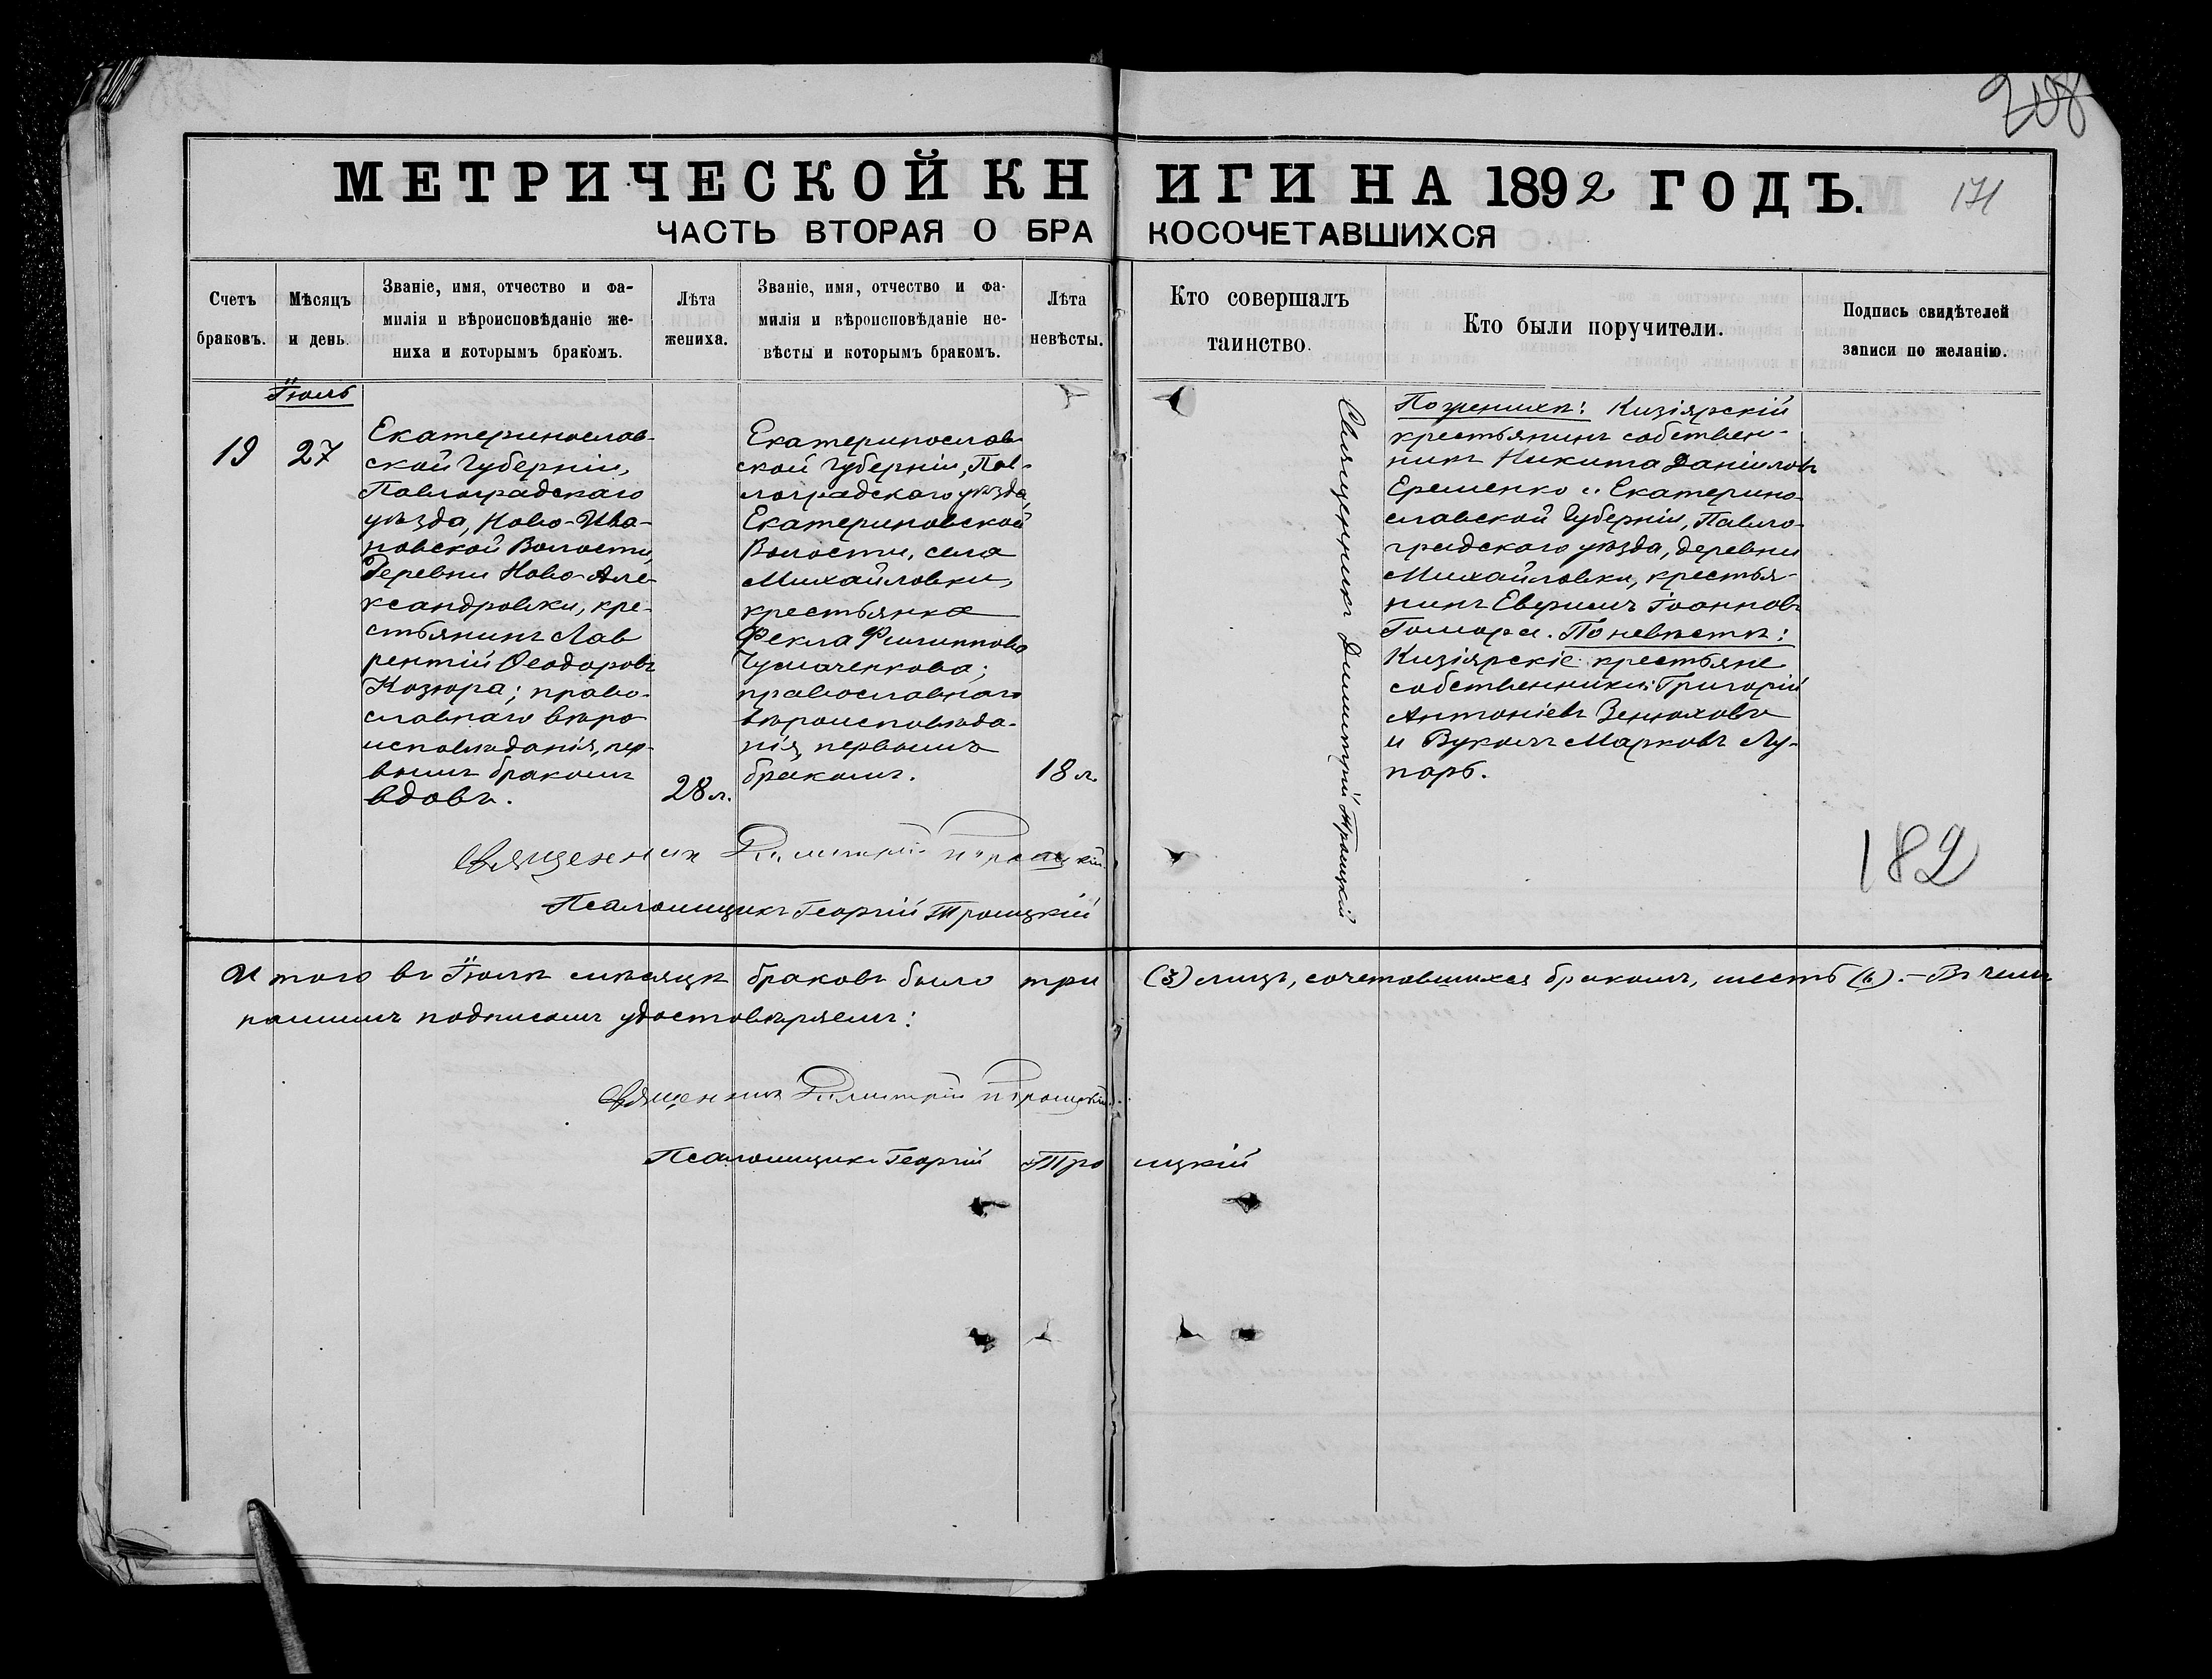 208
МЕТРИЧЕСКОЙ КНИГИ НА 1892 ГОДЪ.
171
ЧАСТЬ ВТОРАЯ О БРАКОСОЧЕТАВШИХСЯ
Счетъ
браковъ.
Мѣсяцъ
и день.
Званіе, имя, отчество и фа-
милія и вѣроисповѣданіе же-
ниха и которымъ бракомъ.
Лѣта
жениха.
Званіе, имя, отчество и фа-
милія и вѣроисповѣданіе не-
вѣсты и которымъ бракомъ.
Лѣта
невѣсты.
Кто совершалъ
таинство.
Кто были поручители.
Подпись свидѣтелей
записи по желанію.
Іюль
19
27
Екатеринослав-
ской Губерніи,
Павлоградскаго
уѣзда, Ново-Ива-
новской Волости,
Деревни Ново-Але-
ксандровки, кре-
стьянинъ Лав
рентій Ѳеодоровъ
Козюра; право-
славнаго вѣро
исповѣданія, пер-
вымъ бракомъ
вдовъ.
28 л.
Екатеринослав-
ской Губерніи, Пав-
лоградскаго уѣзда,
Екатериновской
Волости, села
Михайловки,
крестьянка
Фекла Филиппова
Чумаченкова;
православнаго
вѣроисповѣда-
нія, первымъ
бракомъ.
18 л.
Священникъ Димитрій Троицкій
По женихѣ: Кизіярскій
крестьянинъ собствен-
никъ Никита Даніиловъ
Еременко и Екатерино-
славской Губерніи, Павло-
градскаго уѣзда, деревни
Михайловки, крестья-
нинъ Евфимъ Іоанновъ
По невѣстѣ:
Кизіярскіе крестьяне
собственники: Григорій
Антоніевъ Зенюховъ
и Вуколъ Марковъ Лу-
парь.
182
Священникъ Димитрій Троицкій
Псаломщикъ Георгій Троицкій
Итого въ Іюлѣ мѣсяцѣ браковъ было три (3) лицъ, сочетавшихся бракомъ, шесть (6). – Въ чемъ
нашимъ подписомъ удостовѣряемъ:
Священникъ Димитрій Троицкій
Псаломщикъ Георгій Троицкій